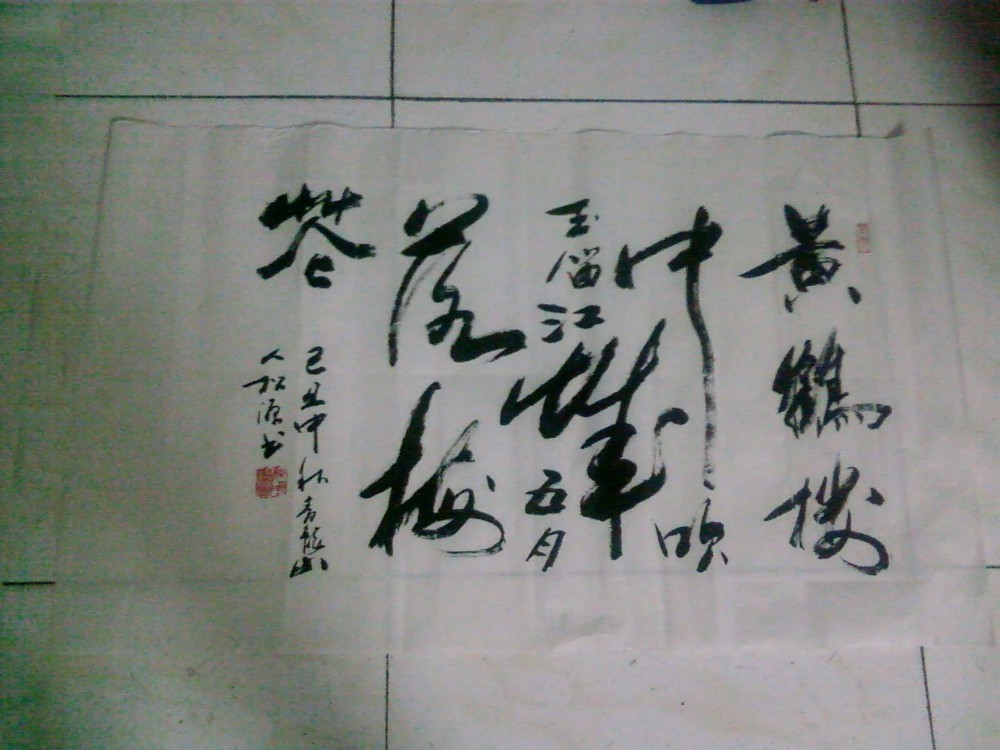 黄鶴楼
中吹
玉笛江城五月
落梅
花
己丑中秋青龍山
人松源书